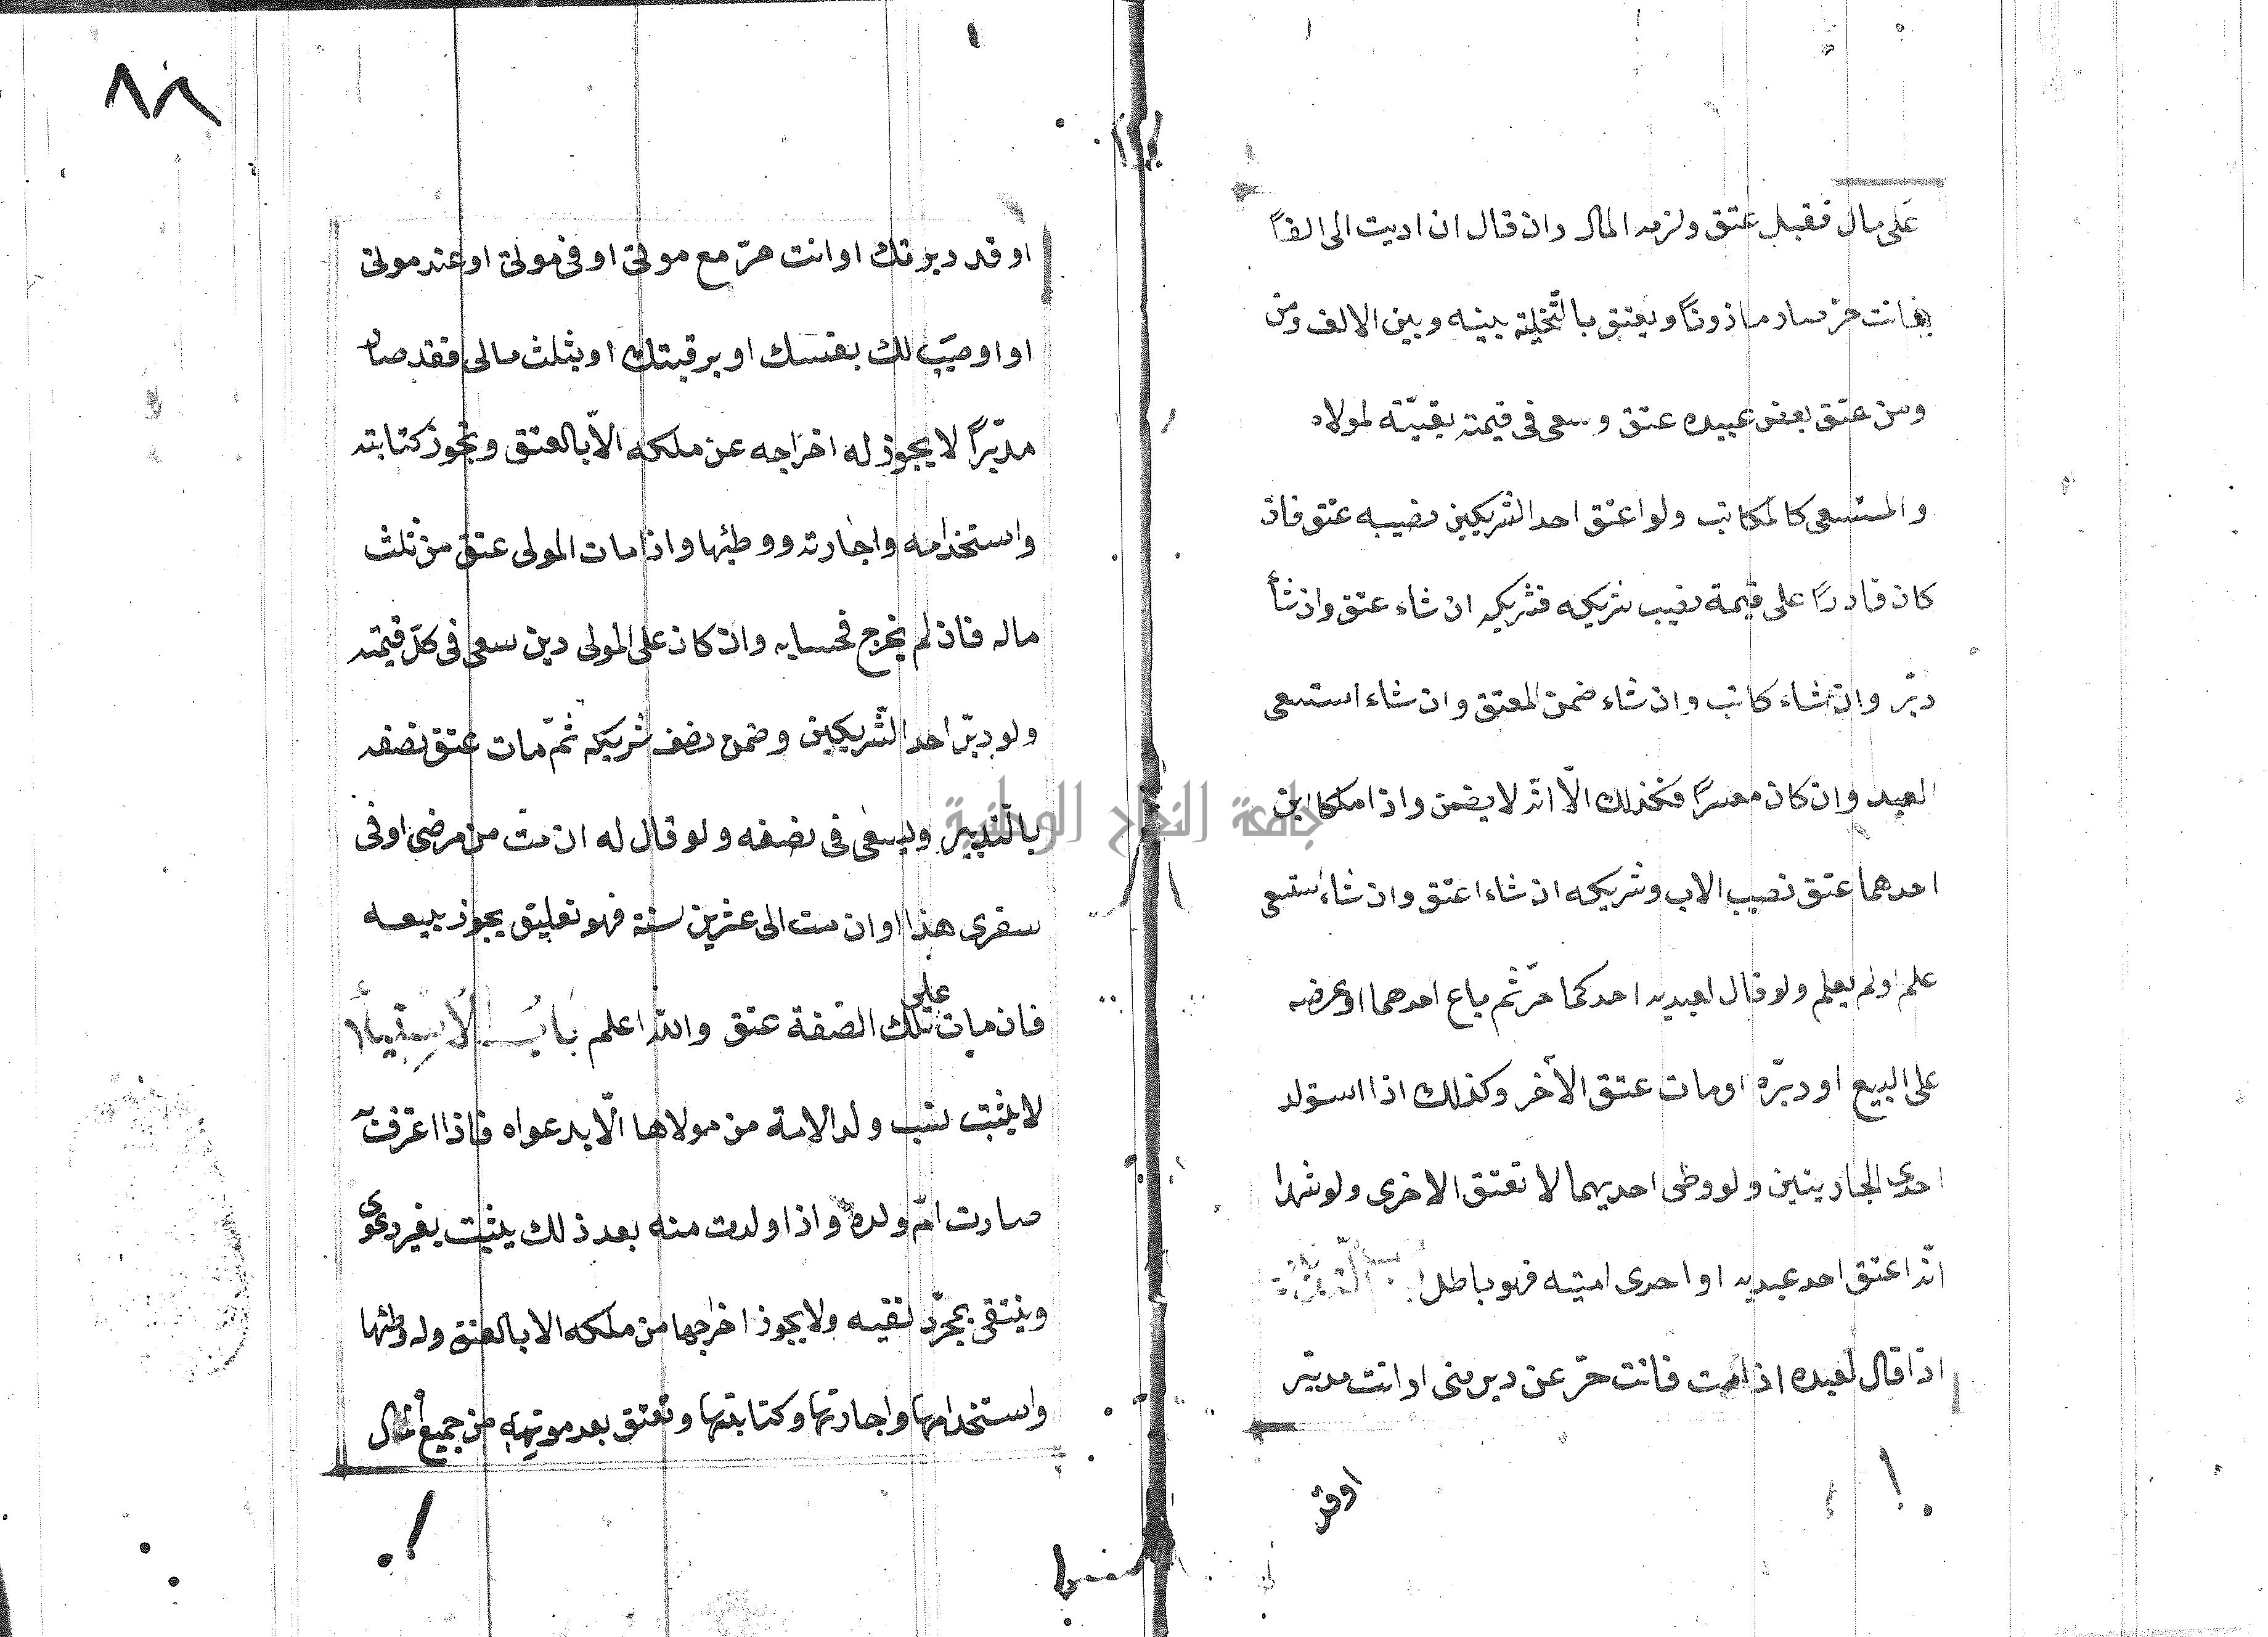 على مال فقبل عتق ولزمه المال وان قال ان اديت الى الفاً
فانت حر صار ماذوناً ويعتق بالتّخلية بينه وبين الالف ومن
ومن عتق بعض عبيده عتق وسعى فى قيمة بقيّته لمولاه
والمستسعى كالمكاتب ولو اعتق احد الشريكين نصيبه عتق فان
كان قادراً على قيمة نصيب شريكه فشريكه ان شاء عتق وان شأ
دبّر وان شاء كاتب وان شاء ضمن المعتق وان شاء استسعى
العبد وان كان معسراً فكذلك الّا انّه لا يضمن واذا ملكا ابن
احدهما عتق نصيب الاب وشريكه ان شاء اعتق وان شاء استسعى
علم او لم يعلم ولو قال لعبديه احدكما حرّ ثم باع احدهما او عرضه
على البيع او دبّره او مات عتق الآخر وكذلك اذا استولد
احدى الجاريتين ولو وطى احديهما لا تعتق الاخرى ولو شهدا
انّه اعتق احد عبديه او احدى امتيه فهو باطل
اذا قال لعبده اذا مت فانت حرّ عن دبر منى او انت مدبّر
او قد
٨٢
او قد دبرتك او انت حرّ مع موتى او فى موتى او عند موتى
او اوصيت لك بنفسك او برقبتك او بثلث مالى فقد صار
مدبّراً لا يجوز له اخراجه عن ملكه الّا بالعتق وتجوز كتابته
واستخدامه واجارته ووطئها واذا مات المولى عتق من ثلث
ماله فان لم يخرج فبحسابه وان كان على المولى دين سعى فى كلّ قيمته
ولو دبّر احد الشّريكين وضمن نصف شريكه ثمّ مات عتق نصفه
بالتّدبير ويسعى فى نصفه ولو قال له ان متّ من مرضى او فى
سفرى هذا او ان مت الى عشرين سنة فهو تعليق يجوز بيعه
فان مات على تلك الصّفة عتق والله اعلم بَابُ الْاسْتِيلا
لا يثبت نسب ولد الامة من مولاها الّا بدعواه فاذا اعترفت
صارت امّ ولده واذا ولدت منه بعد ذلك يثبت بغير دعوى
وينتفى بمجرّد نفيه ولا يجوز اخراجها من ملكه الا بالعتق وله وطئها
واستخدامها واجارتها وكتابتها وتعتق بعد موته من جميع المال
جامعة النجاح الوطنية